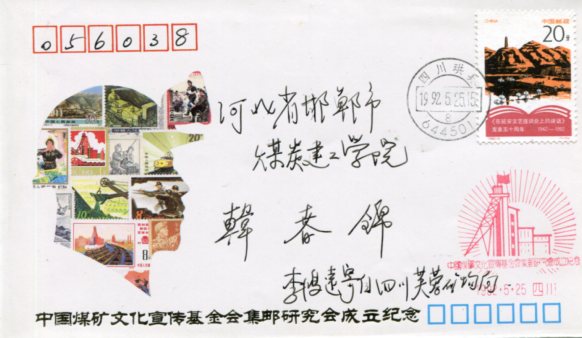 056038
中国邮政
20分
四川珙县
1992.5.25.15
8
644501
《在延安文艺座谈会上的讲话》
发表五十周年 1942-1992
河北省邯郸市
煤炭建工学院
韩春锦
四川芙蓉矿务局
中国煤矿文化宣传基金会集邮研究会成立纪念
1992.5.25 四川
中国煤矿文化宣传基金会集邮研究会成立纪念